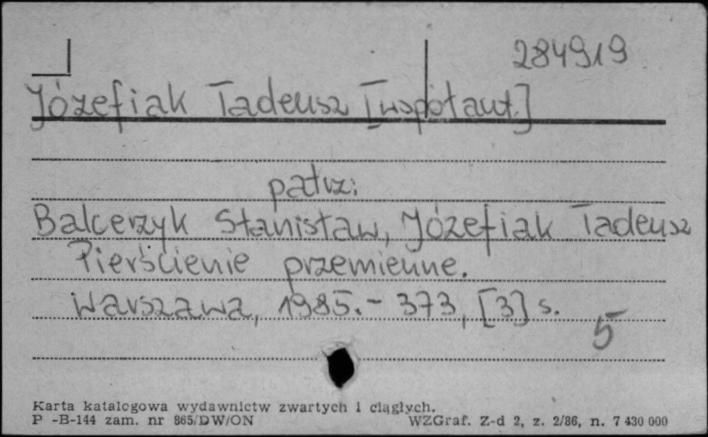 284919
Józefiak Tadeusz [współaut.]
patrz:
Balcerzyk Stanisław, Józefiak Tadeusz
Pierścienie przemienne.
Warszawa, 1985. - 373, [3] s.
5
Karta katalogowa wydawnictw zwartych i ciągłych.
P -B-144 zam. nr 865/DW/ON WZGraf. Z-d 2, z. 2/86, n. 7 430 000